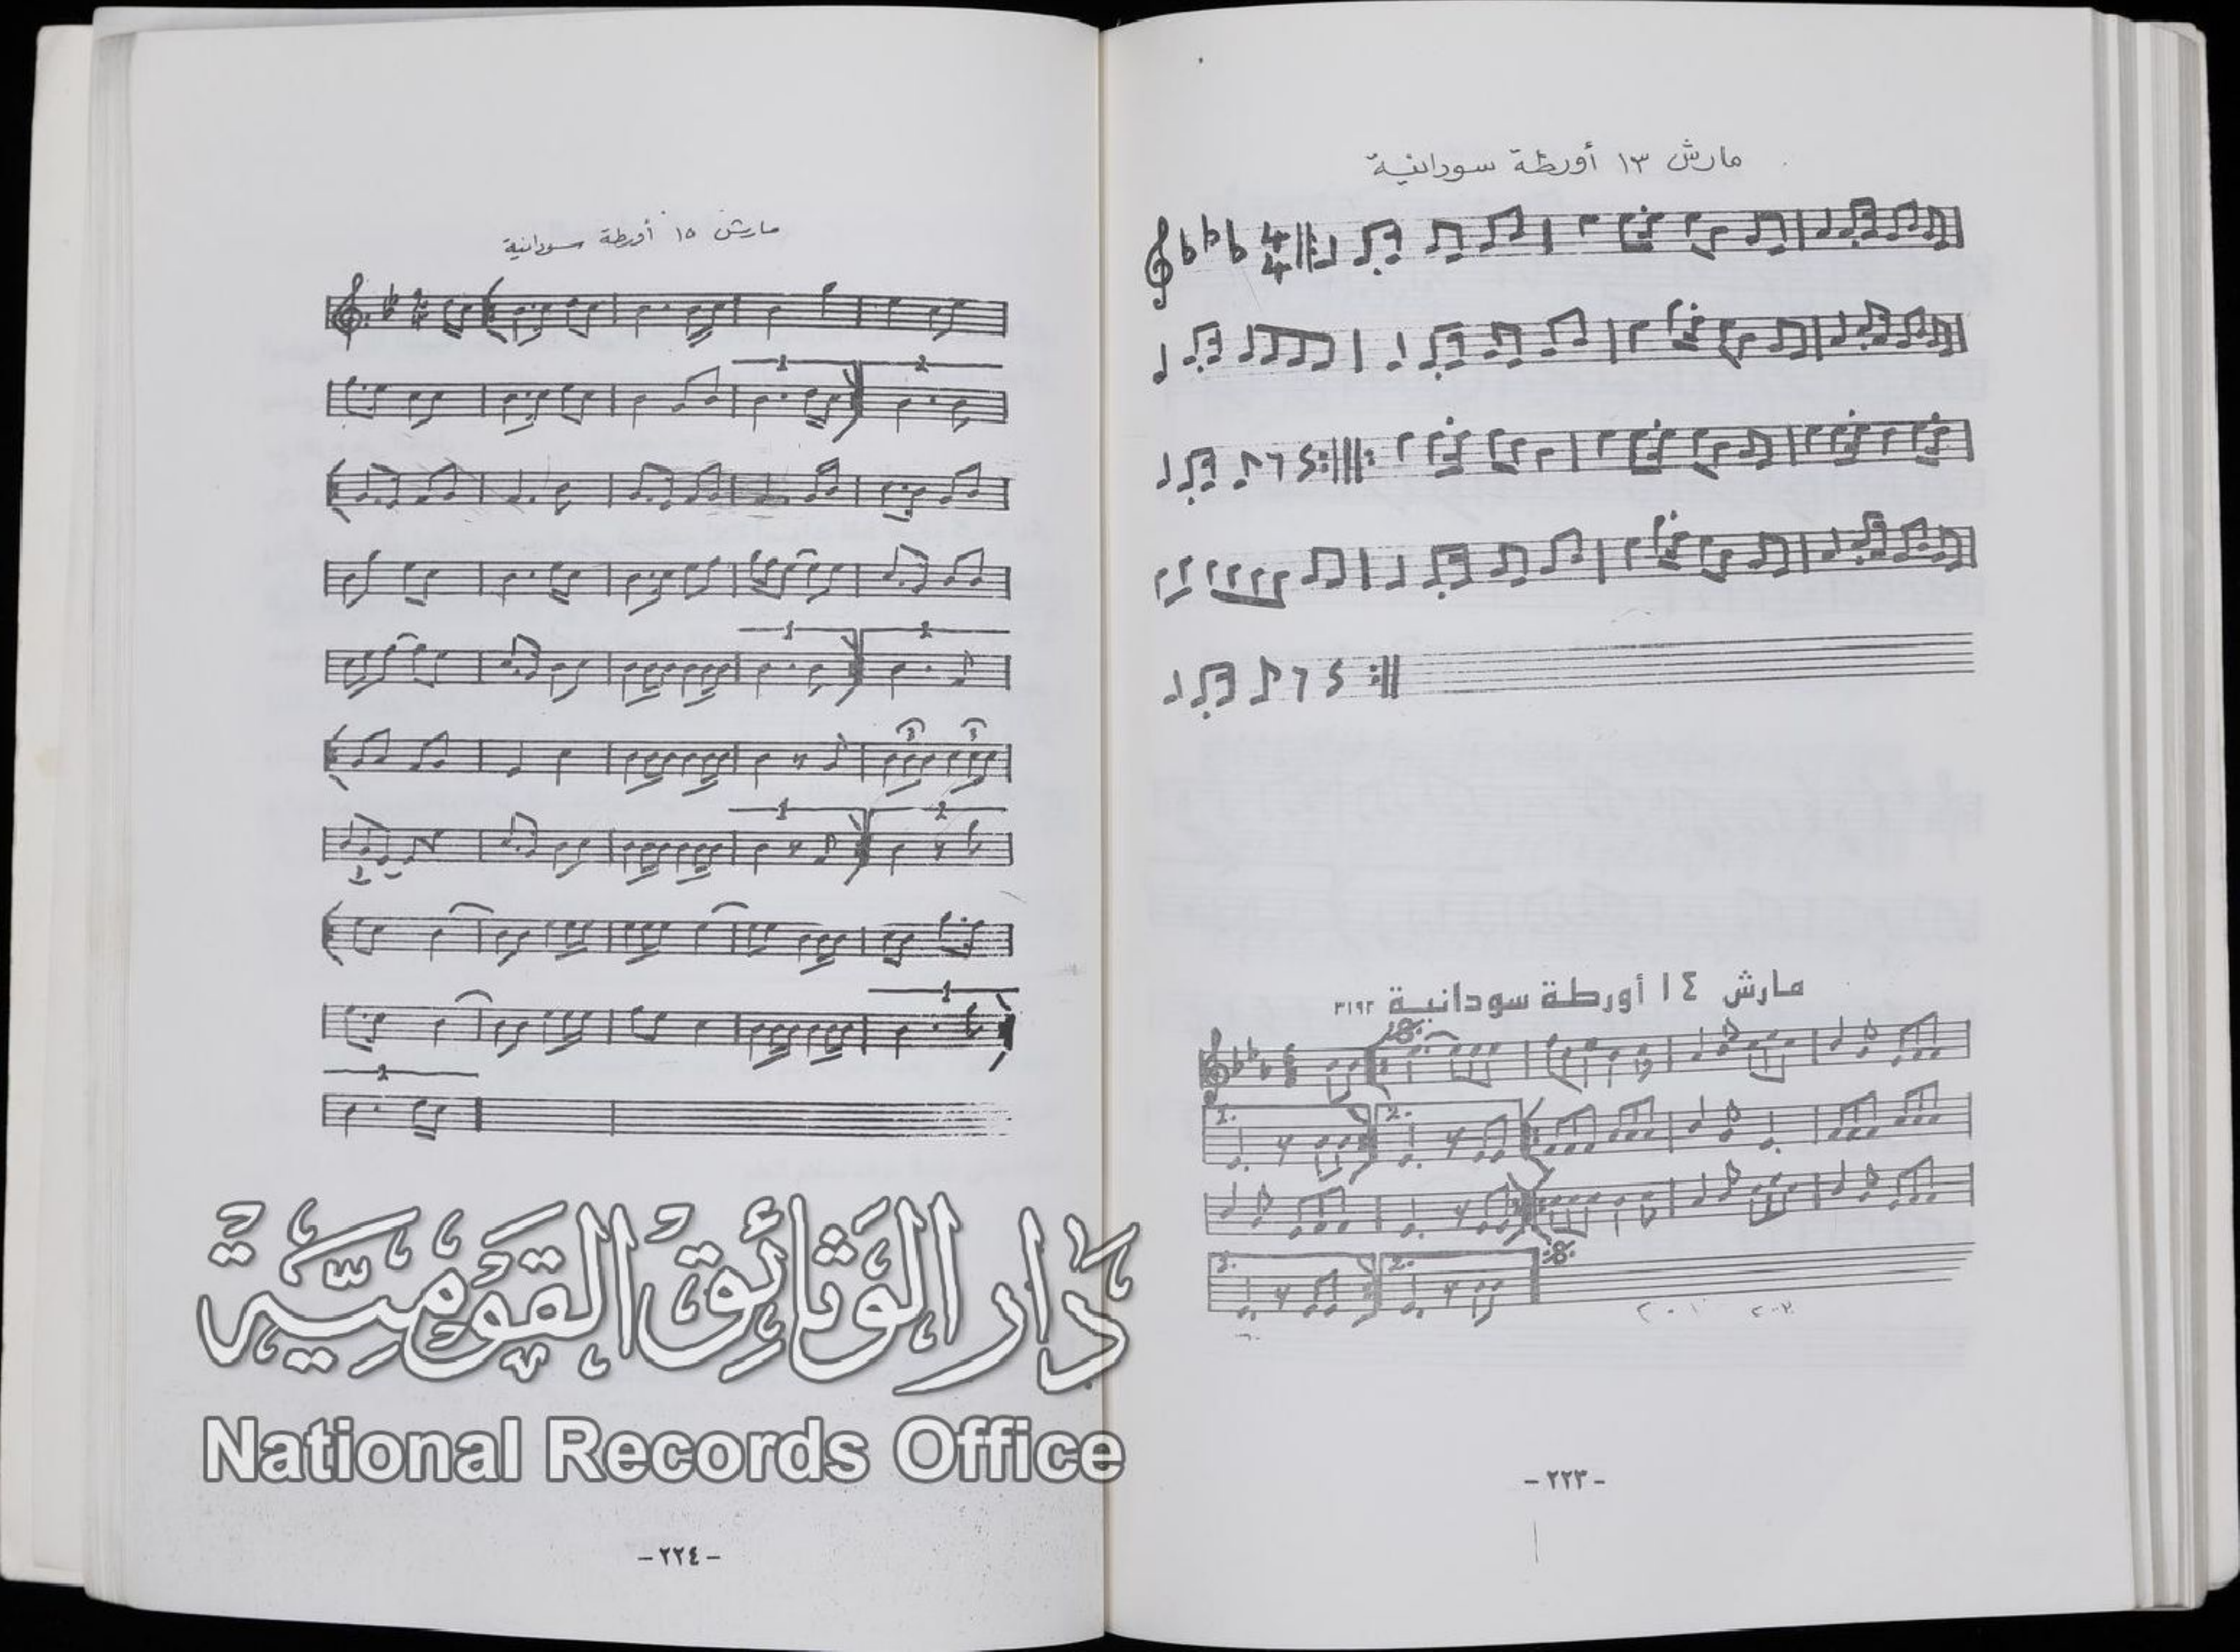 مارش ١٣ أورطة سودانية
4
4
مارش ١٤ أورطة سودانية ٣١٩٢
1. 2.
2.
- ٢٢٣ -
مارش ١٥ أورطة سودانية
1 2
1 2
3 3
1 2
1
2
دار الوثائق القومية
National Records Office
- ٢٢٤ -